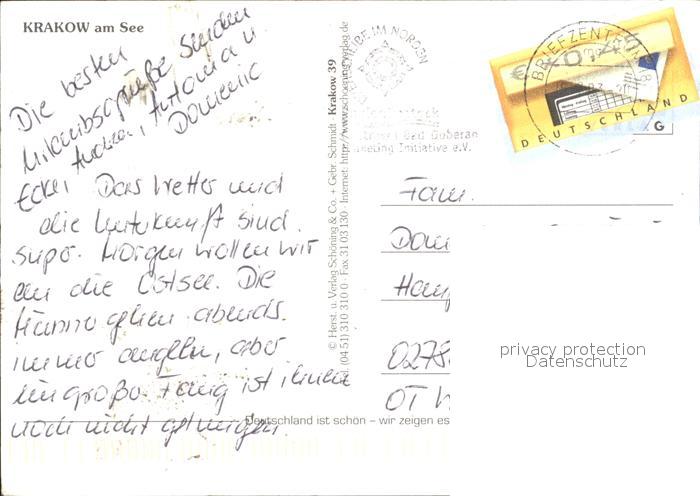 KRAKOW am See
Die besten
Urlaubsgrüße senden
Andrea, Antonia u
Dominic
Ecke, Das Wetter und
die Unterkunft sind
super. Morgen wollen wir
an die Ostsee. Die
Männer gehen abends
immer angeln, aber
ein großer Fang ist ihnen
noch nicht gelungen
© Herst. u. Verlag Schöning & Co. + Gebr. Schmidt · Krakow 39
Tel. (04 51) 310 310 0 · Fax 31 03 130 · Internet: http://www.schoening-verlag.de
IM NORDEN
Bad Doberan
Initiative e.V.
BRIEFZENTR
DEUTSCHLAND
G
Fam.
Dom
Haup
0278
OT
privacy protection
Datenschutz
Deutschland ist schön – wir zeigen es